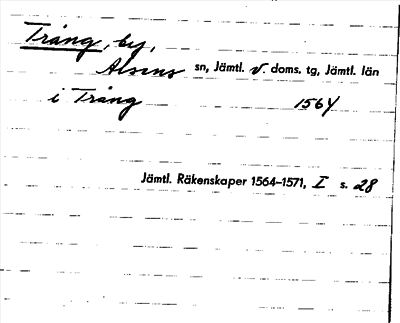 Trång, by,
Alsens sn, Jämtl. v. doms. tg, Jämtl. län
i Trång 1564
Jämtl. Räkenskaper 1564–1571, I s. 28